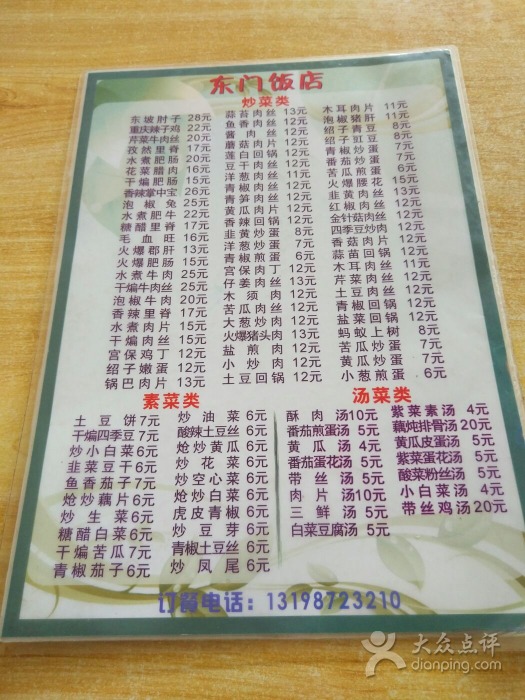 东门饭店
炒菜类
东坡肘子 28元
重庆辣子鸡 22元
芹菜牛肉丝 20元
孜然里脊 17元
水煮肥肠 20元
花菜腊肉 16元
干煸肥肠 15元
香辣掌中宝 26元
泡椒兔 25元
水煮肥牛 22元
糖醋里脊 17元
毛血旺 16元
火爆郡肝 13元
火爆肥肠 15元
水煮牛肉 25元
干煸牛肉丝 25元
泡椒牛肉 20元
香辣里脊 17元
水煮肉片 15元
干煸肉丝 15元
宫保鸡丁 12元
绍子嫩蛋 10元
锅巴肉片 13元
蒜苔肉丝 13元
鱼香肉丝 12元
酱肉丝 12元
蘑菇肉片 12元
莲白回锅 12元
豆干肉丝 12元
洋葱肉丝 11元
青椒肉丝 12元
青笋肉丝 12元
黄瓜肉片 12元
香辣回锅 12元
韭黄炒蛋 8元
洋葱炒蛋 7元
青椒煎蛋 7元
宫保肉丁 12元
仔姜肉丝 13元
木须肉 12元
苦瓜肉丝 12元
大葱炒肉 12元
火爆猪头肉 13元
盐煎肉 12元
小炒肉 12元
土豆回锅 12元
木耳肉片 11元
泡椒猪肝 11元
绍子青豆 8元
绍子豇豆 8元
青椒炒蛋 7元
番茄炒蛋 7元
苦瓜煎蛋 7元
火爆腰花 15元
韭黄肉丝 13元
红椒肉丝 12元
金针菇肉丝 12元
四季豆炒肉 12元
香菇肉片 12元
蒜苗回锅 12元
木耳肉丝 11元
芹菜肉丝 12元
土豆肉丝 12元
青椒回锅 12元
盐菜回锅 12元
蚂蚁上树 8元
苦瓜炒蛋 7元
黄瓜炒蛋 7元
小葱煎蛋 6元
素菜类
土豆饼 7元
干煸四季豆 7元
炒小白菜 6元
韭菜豆干 6元
鱼香茄子 7元
炝炒藕片 6元
炒生菜 6元
糖醋白菜 6元
干煸苦瓜 7元
青椒茄子 6元
炒油菜 6元
酸辣土豆丝 6元
炝炒黄瓜 6元
炒花菜 6元
炒空心菜 6元
炝炒白菜 6元
虎皮青椒 6元
炒豆芽 6元
青椒土豆丝 6元
炒凤尾 6元
汤菜类
酥肉汤 10元
番茄煎蛋汤 5元
黄瓜汤 4元
番茄蛋花汤 5元
带丝汤 5元
肉片汤 10元
三鲜汤 5元
白菜豆腐汤 5元
紫菜素汤 4元
藕炖排骨汤 20元
黄瓜皮蛋汤 5元
紫菜蛋花汤 5元
酸菜粉丝汤 5元
小白菜汤 4元
带丝鸡汤 20元
订餐电话：13198723210
大众点评
dianping.com